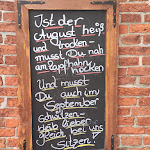 Ist der
August heiß
und trocken-
musst Du nah
am Zapfhahn
hocken
Und musst
Du auch im
September
schwitzen-
bleib lieber
gleich bei uns
sitzen!